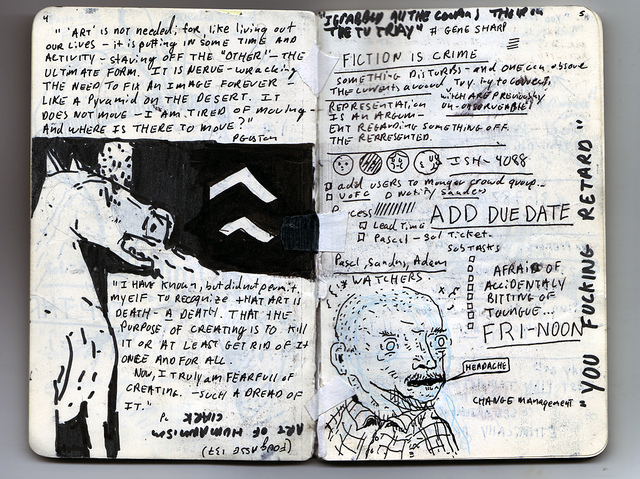 4
"'ART' IS NOT NEEDED; for, like living out
OUR LIVES - IT IS PUTTING IN SOME TIME AND
ACTIVITY - STAVING OFF THE "OTHER" - THE
ULTIMATE FORM. IT IS NERVE-WRACKING
THE NEED TO FIX AN IMAGE FOREVER -
LIKE A PYRAMID ON THE DESERT. IT
DOES NOT MOVE - I AM TIRED OF MOVING
AND WHERE IS THERE TO MOVE?"
P GUSTON
"I HAVE KNOWN, but did not permit
MYSELF TO RECOGNIZE THAT ART IS
DEATH - A DEATH. THAT THE
PURPOSE OF CREATING IS TO KILL
IT OR AT LEAST GET RID OF IT
ONCE AND FOR ALL.
NOW, I TRULY AM FEARFULL OF
CREATING. - SUCH A DREAD OF
IT."
ART OF HUMANISM
CLARK
5
"I GRABBED ALL THE
# GENE SHARP
FICTION IS CRIME
SOMETHING DISTURBS - and one can observe
The currents around. Try to
REPRESENTATION which ARE previously
IS AN ARGUM- UN-OBSERVEABLE!
ENT REGARDING SOMETHING OFF
THE REPRESENTED.
ISH-4088
add users to group...
Process ADD DUE DATE
Lead Time
Pascal - Ticket-
SUBTASKS
Pascal, Sandra, Adam
WATCHERS
AFRAID OF
ACCIDENTALY
BITTING OF
TOUNGUE...
FRI-NOON
HEADACHE
CHANGE management
YOU FUCKING RETARD"